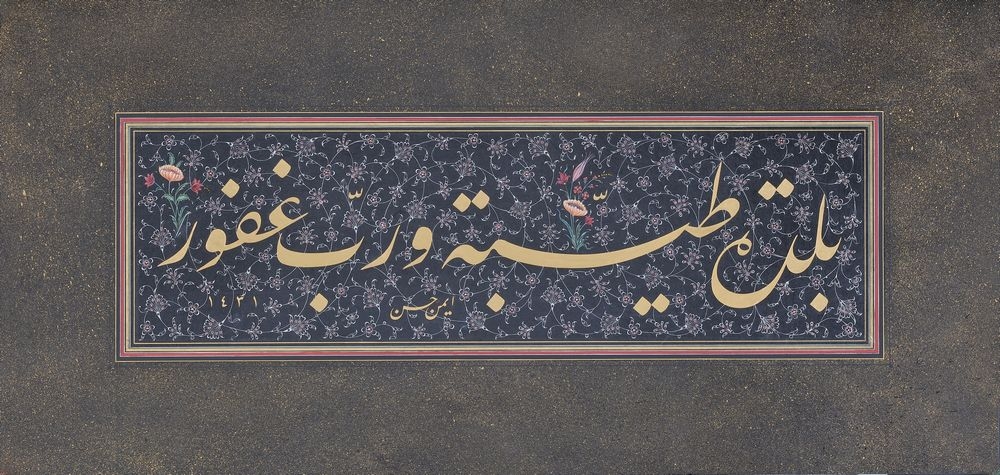 بلدة طيبة وربّ غفور
ايمن حسن
١٤٣١